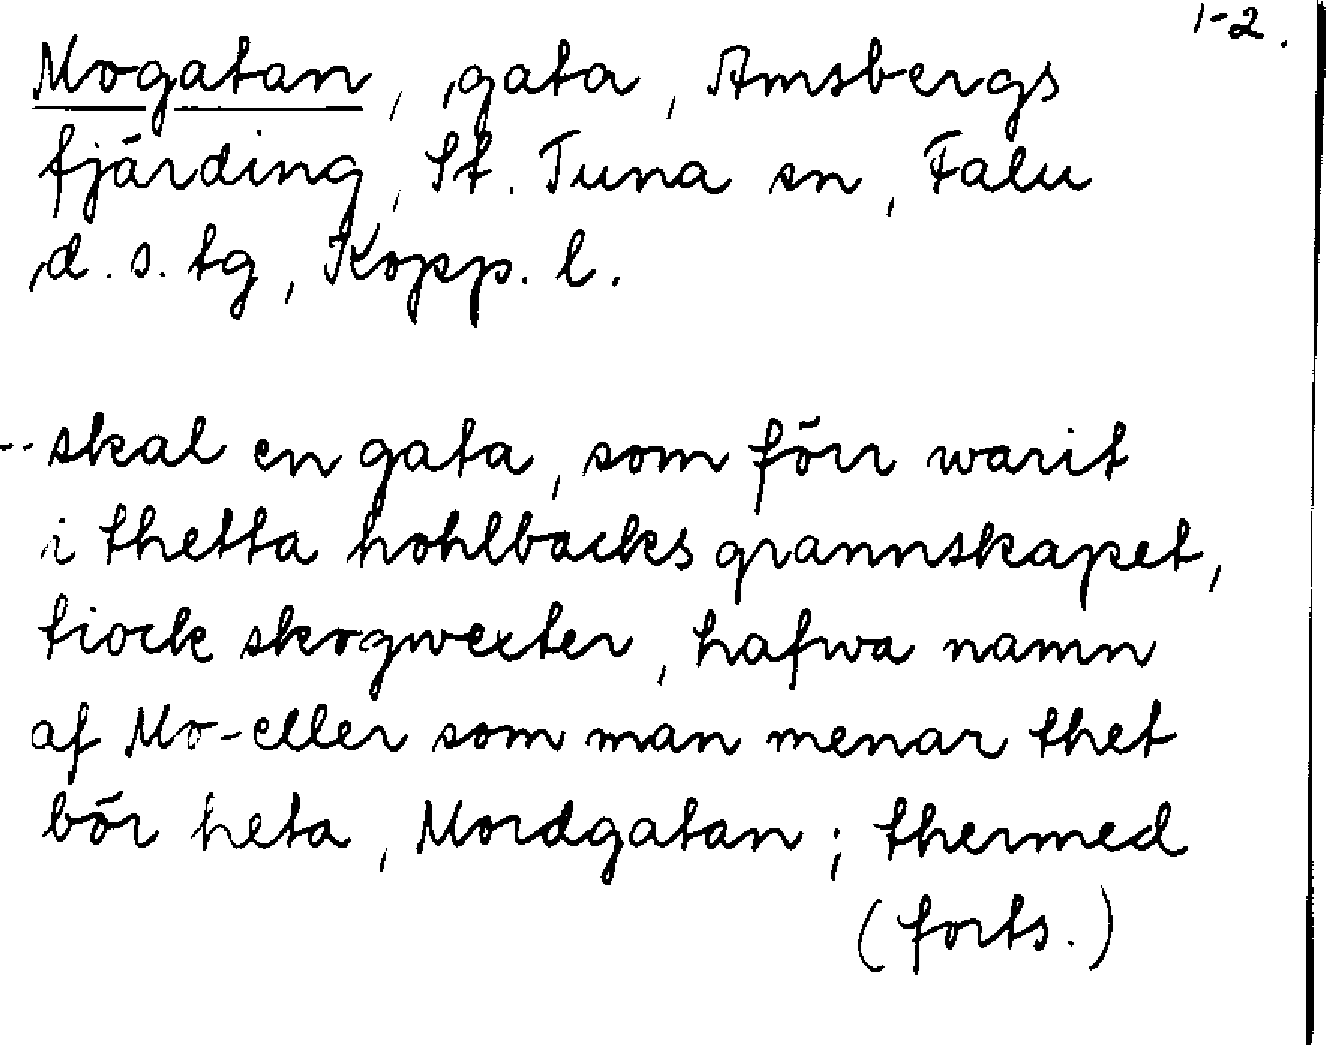 1-2.
Mogatan, gata, Amsbergs
fjärding, St. Tuna sn, Falu
d.s. tg, Kopp. l.
-- skal en gata, som förr warit
i thetta hohlbacks grannskapet,
tiock skogwexter, hafwa namn
af Mo- eller som man menar thet
bör heta, Mordgatan; thermed
(forts.)